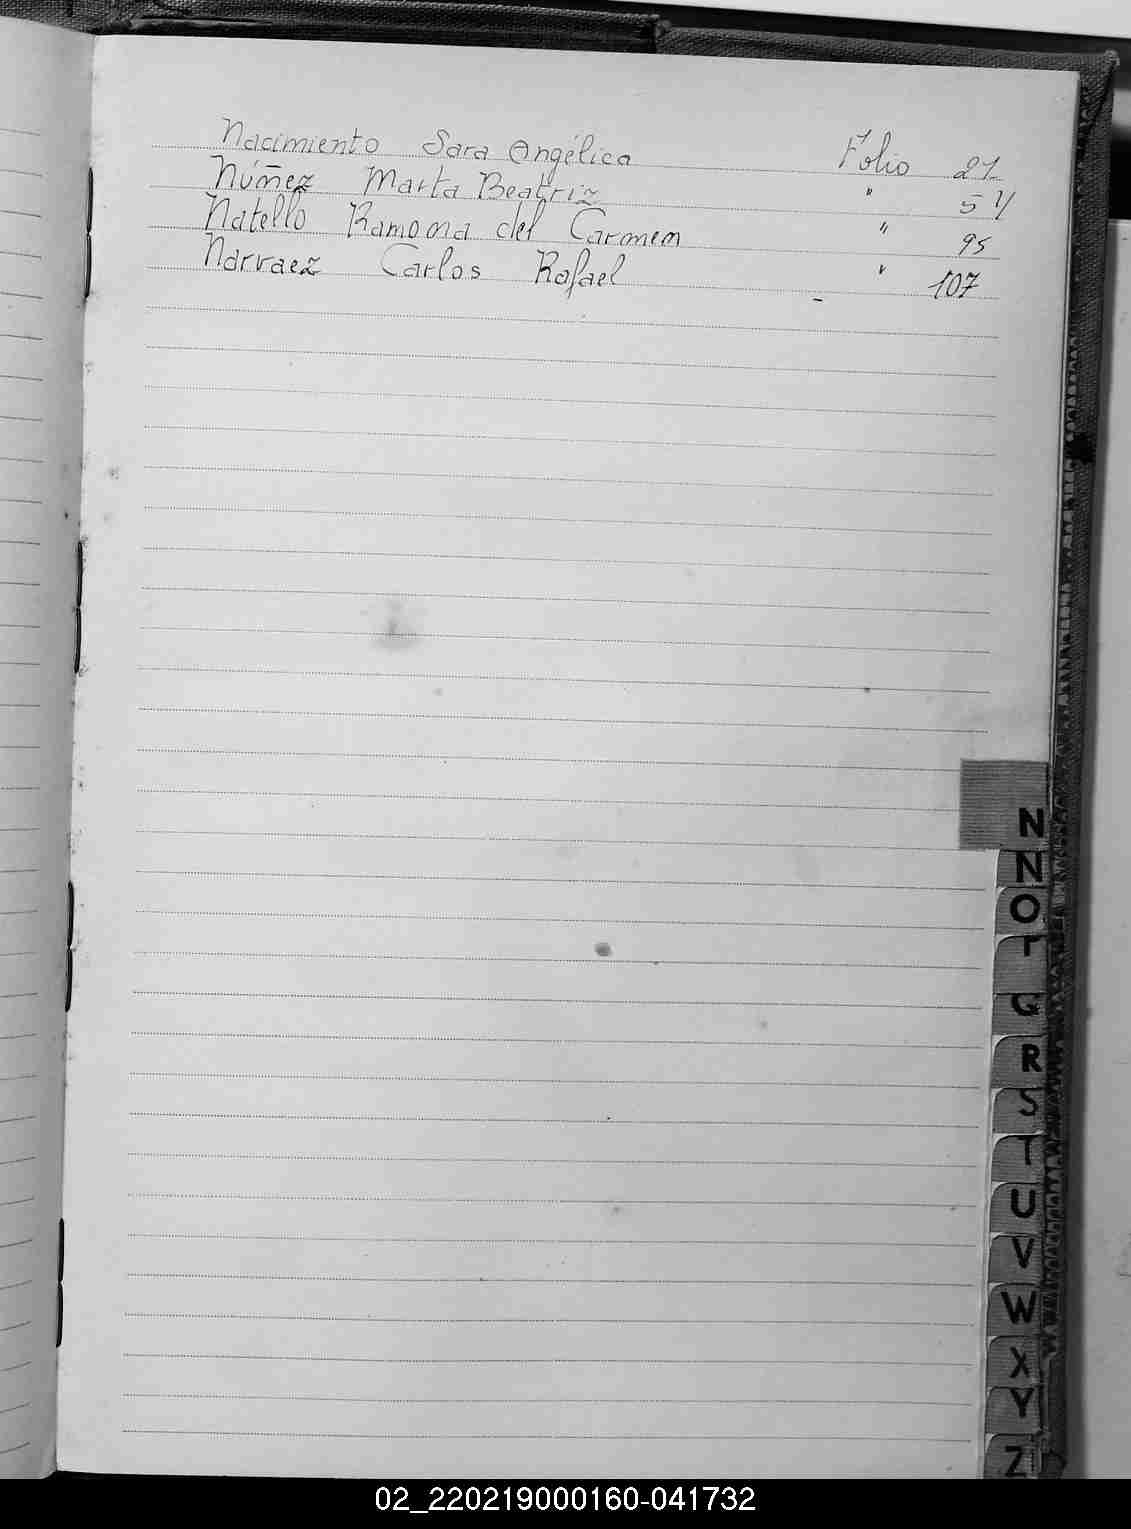 Nacimiento Sara Angélica Folio 21
Núñez Marta Beatriz " 5
Natello Ramona del Carmen " 95
Narvaez Carlos Rafael " 107
N
N
O
Q
R
S
T
U
V
W
X
Y
Z
02_220219000160-041732